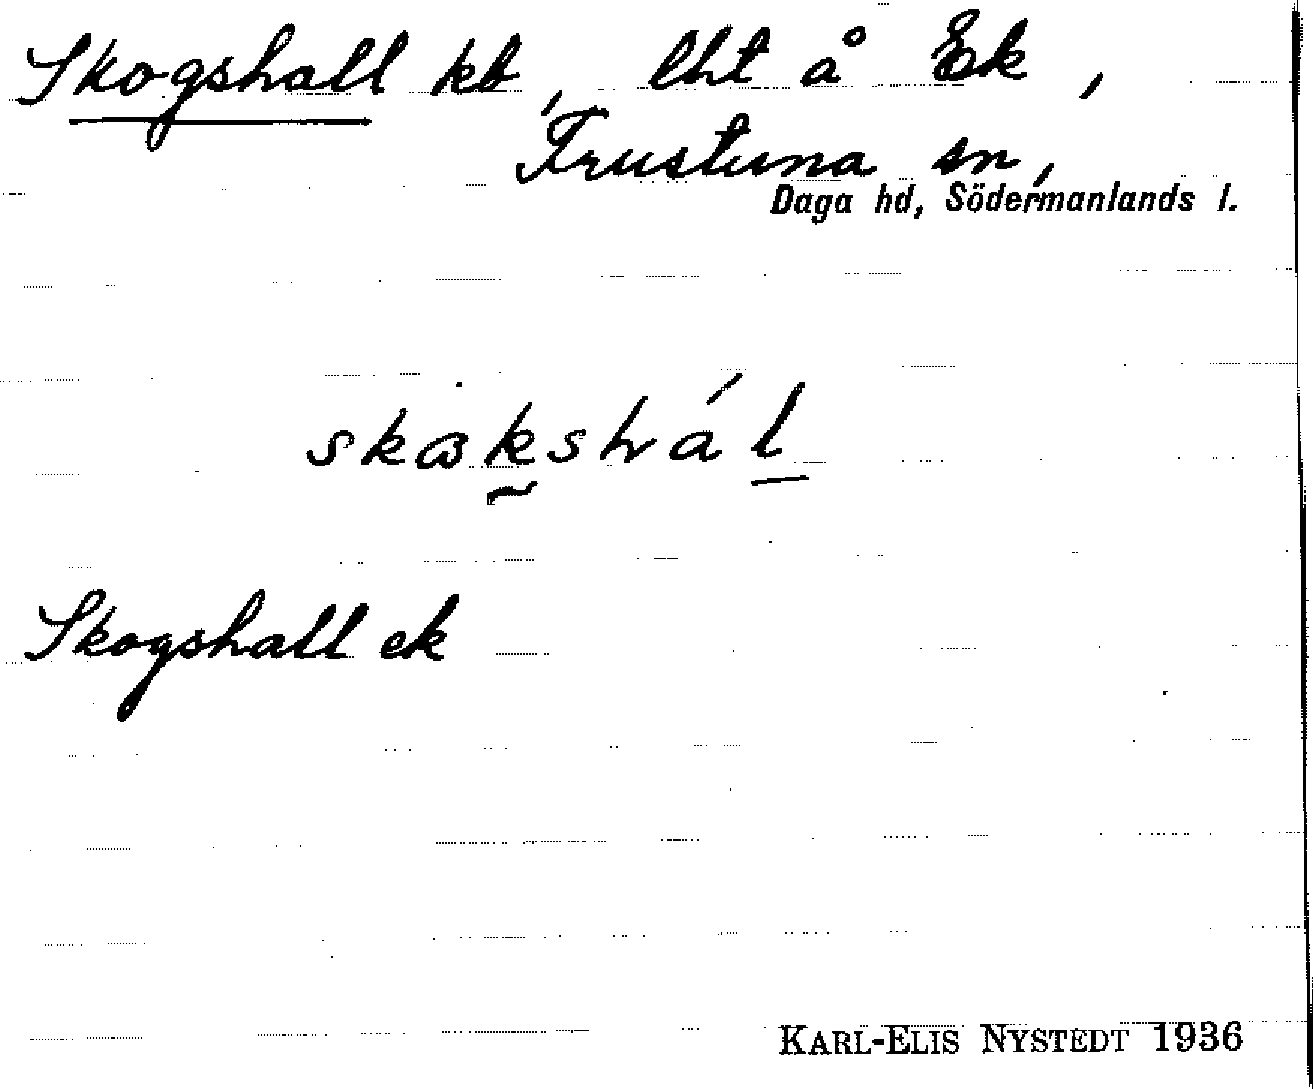 Skogshall kb, lht å Ek,
Frustuna sn,
Daga hd, Södermanlands l.
skɷk̰shál̲
Skogshall ek
KARL-ELIS NYSTEDT 1936